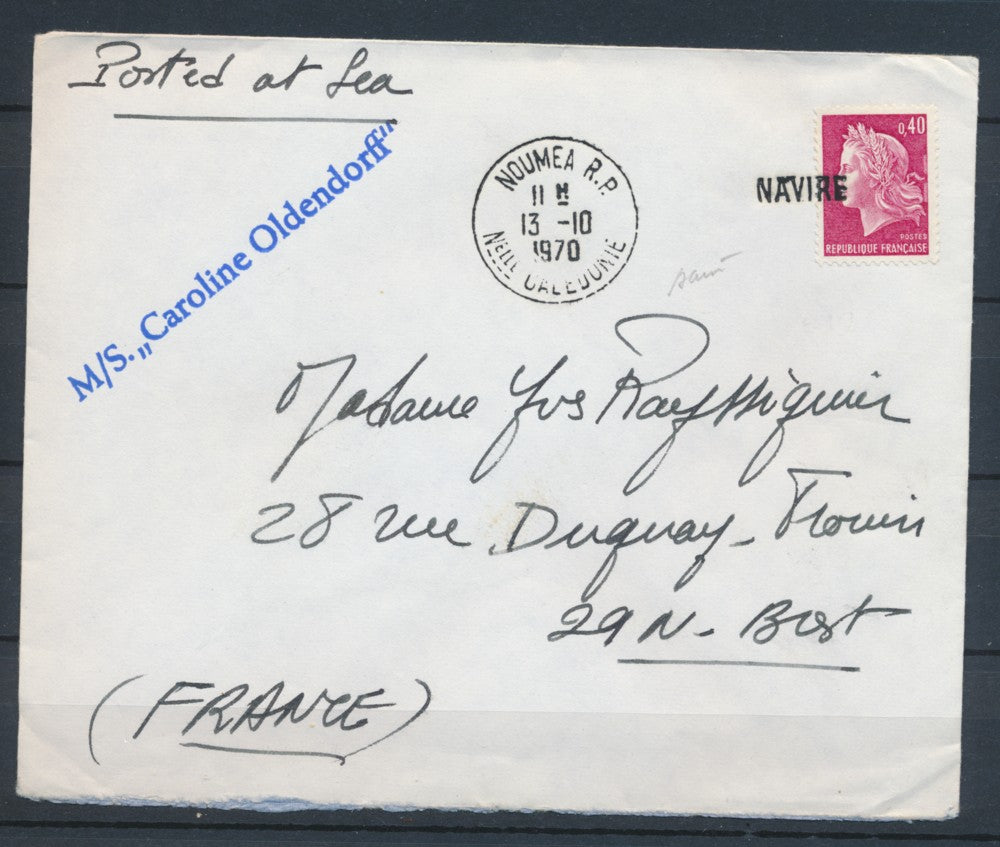 Posted at Sea
M/S. „Caroline Oldendorff"
NOUMEA R.P.
11 H
13 -10
1970
Nelle CALEDONIE
NAVIRE
0,40
POSTES
REPUBLIQUE FRANÇAISE
Madame Yves
28 rue Duguay-Trouin
29N- Brest
(FRANCE)